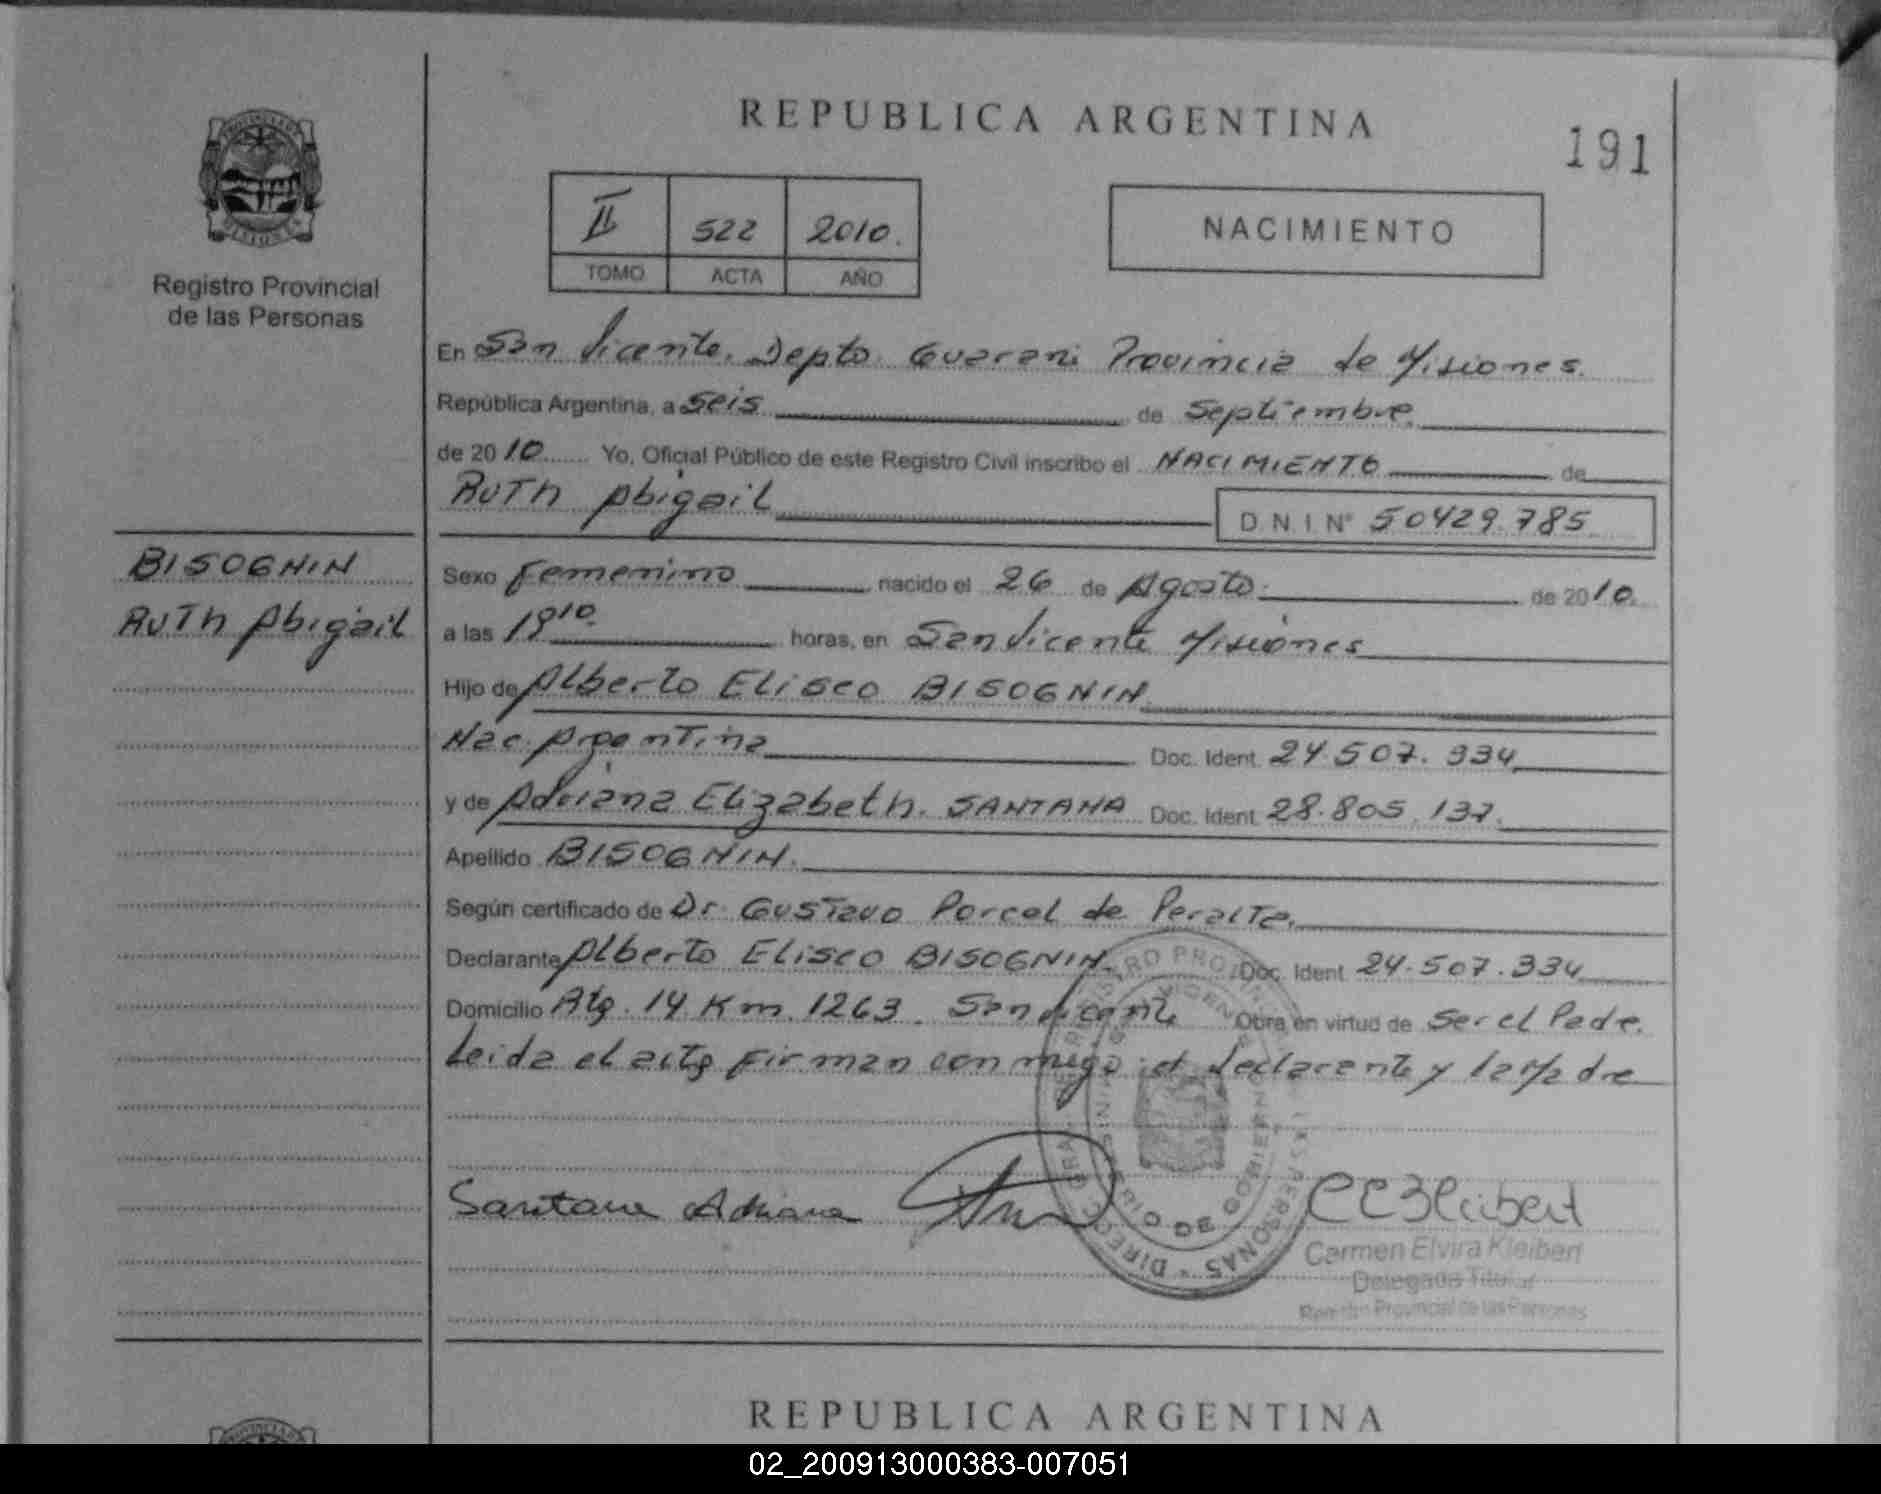 REPUBLICA ARGENTINA
191
PROVINCIA DE
MISIONES
Registro Provincial
de las Personas
II 522 2010.
TOMO ACTA AÑO
NACIMIENTO
En San Vicente. Depto. Guarani Provincia de Misiones.
República Argentina, a seis de Septiembre.
de 2010 Yo, Oficial Público de este Registro Civil inscribo el NACIMIENTO de
RUTh Abigail D.N.I. N° 50429.785
BISOGNIN
RUTh Abigail
Sexo Femenino nacido el 26 de Agosto. de 2010.
a las 19 10 horas, en San Vicente Misiones
Hijo de Alberto Eliseo BISOGNIN
Nac. Argentina Doc. Ident. 24.507.334
y de Adriana Elizabeth. SANTANA Doc. Ident. 28.805.137.
Apellido BISOGNIN.
Según certificado de Dr. Gustavo Porcel de Peralta.
Declarante Alberto Eliseo BISOGNIN. Doc. Ident. 24.507.334
Domicilio Rtg. 14 Km. 1263. San Vicente Obra en virtud de ser el Padre.
Leida el acta firman conmigo el declarante y la Madre
Santana Adriana
Carmen Elvira Kleibert
Delegada Titular
Registro Provincial de las Personas
REPUBLICA ARGENTINA
02_200913000383-007051